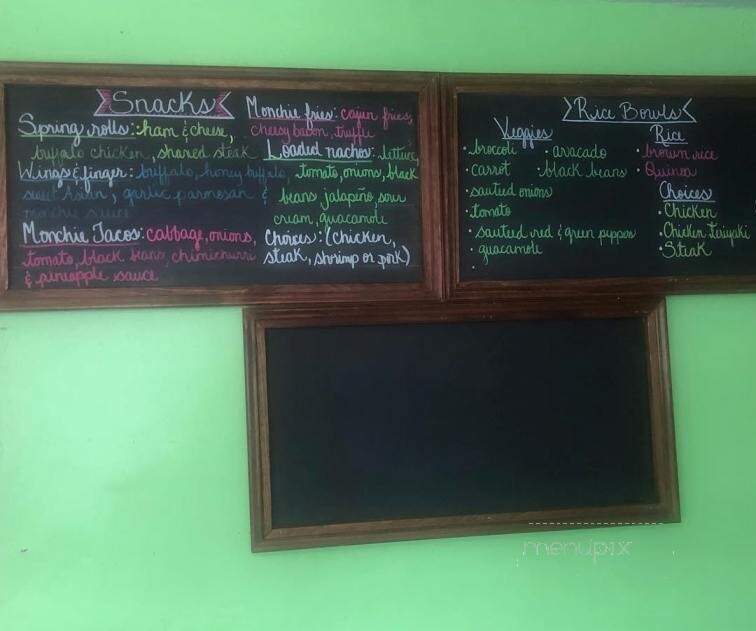 Snacks
Spring rolls: ham & cheese,
buffalo chicken, shared steak
Wings & finger: buffalo, honey buffalo,
sweet Asian, garlic parmesan &
monchie sauce
Monchie Tacos: cabbage, onions,
tomato, black beans, chimichurri
& pineapple sauce
Monchie fries: cajun fries,
cheesy bacon, truffle
Loaded nachos: lettuce,
tomato, onions, black
beans, jalapeño, sour
cream, guacamole
Choices: (chicken,
steak, shrimp or pork)
Rice Bowls
Veggies
• broccoli
• carrot
• sauteed onions
• tomato
• sauteed red & green peppers
• guacamole
• avacado
• black beans
Rice
• brown rice
• Quinoa
Choices
• Chicken
• Chicken Taiyaki
• Steak
menupix